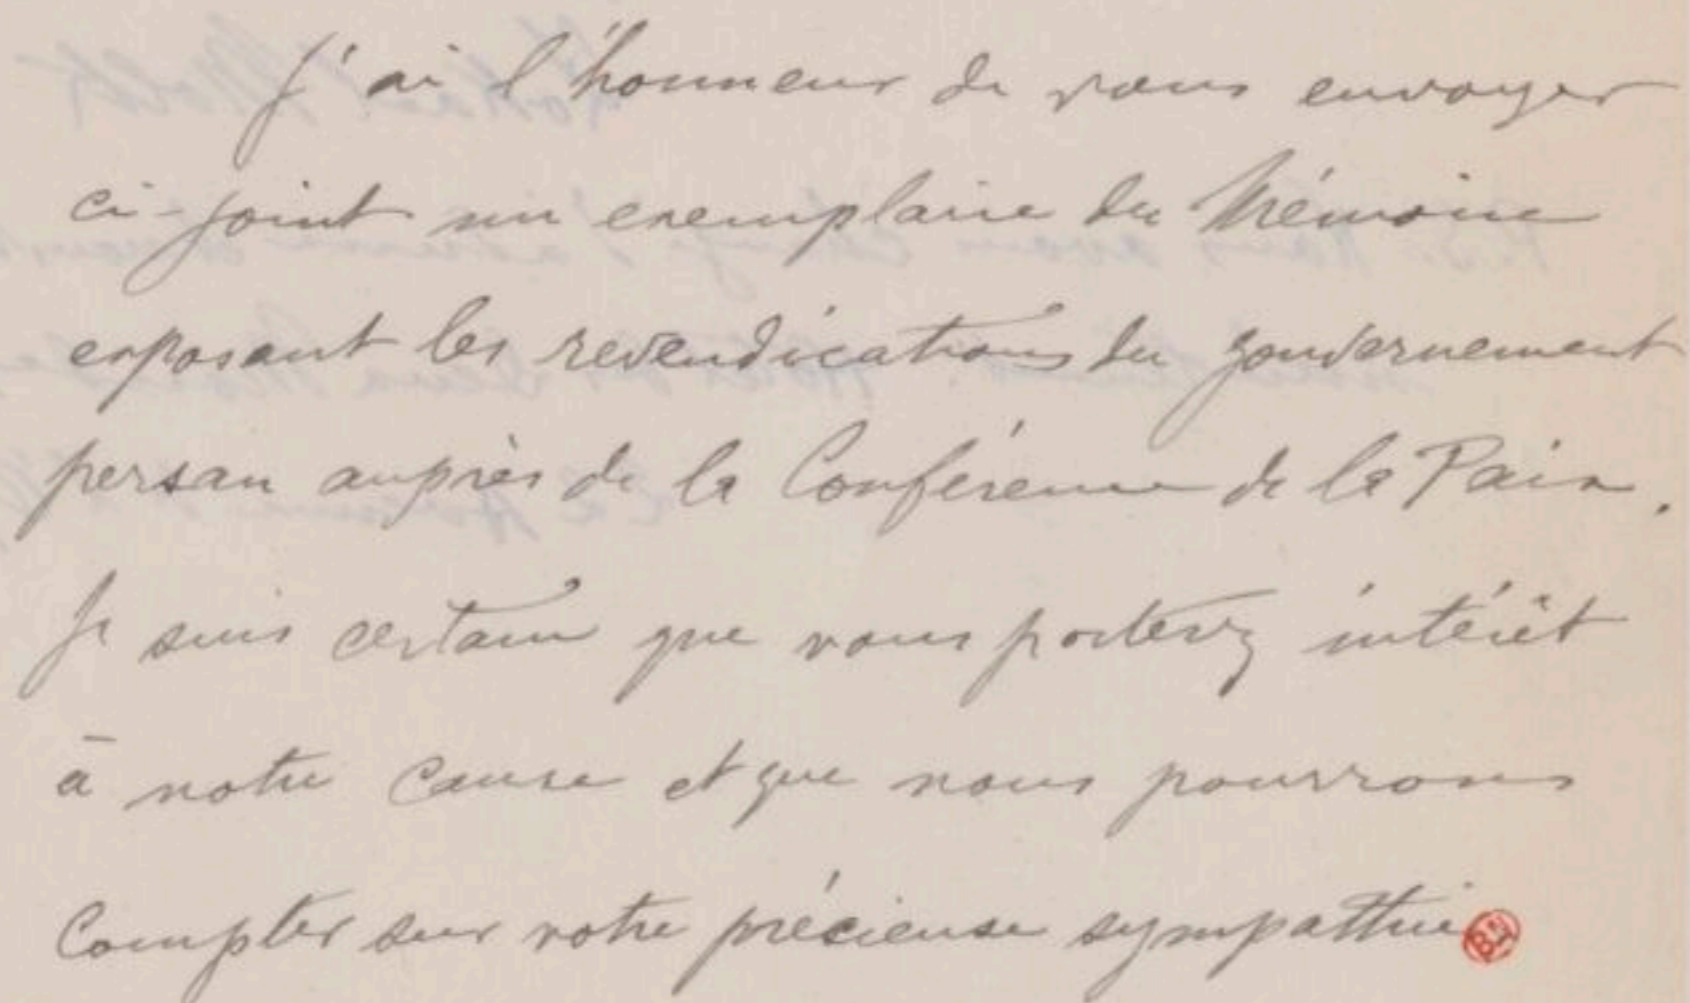 J'ai l'honneur de vous envoyer
ci-joint un exemplaire du Mémoire
exposant les revendications du gouvernement
persan auprès de la Conférence de la Paix.
Je suis certain que vous porterez intérêt
à notre cause et que nous pourrons
compter sur votre précieuse sympathie